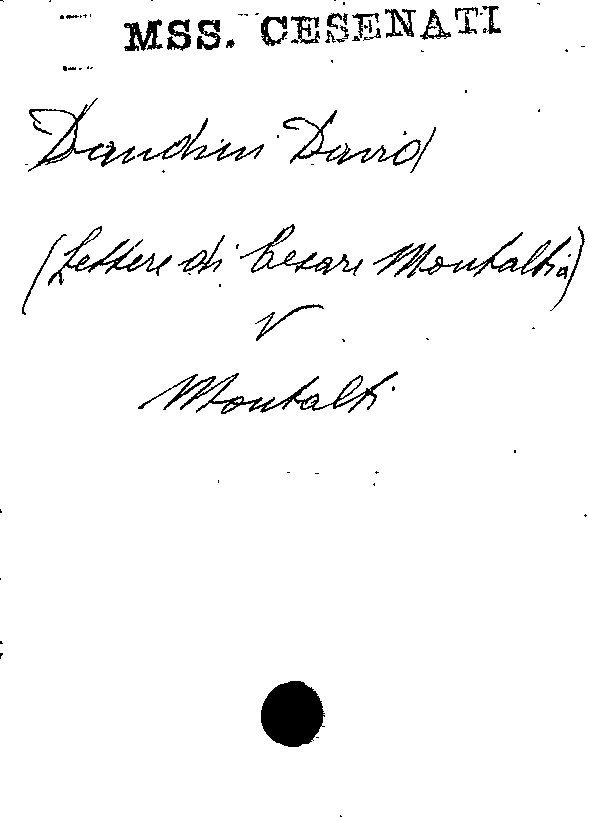 MSS. CESENATI
Dandini David
(Lettere di Cesare Montalti a)
V
Montalti